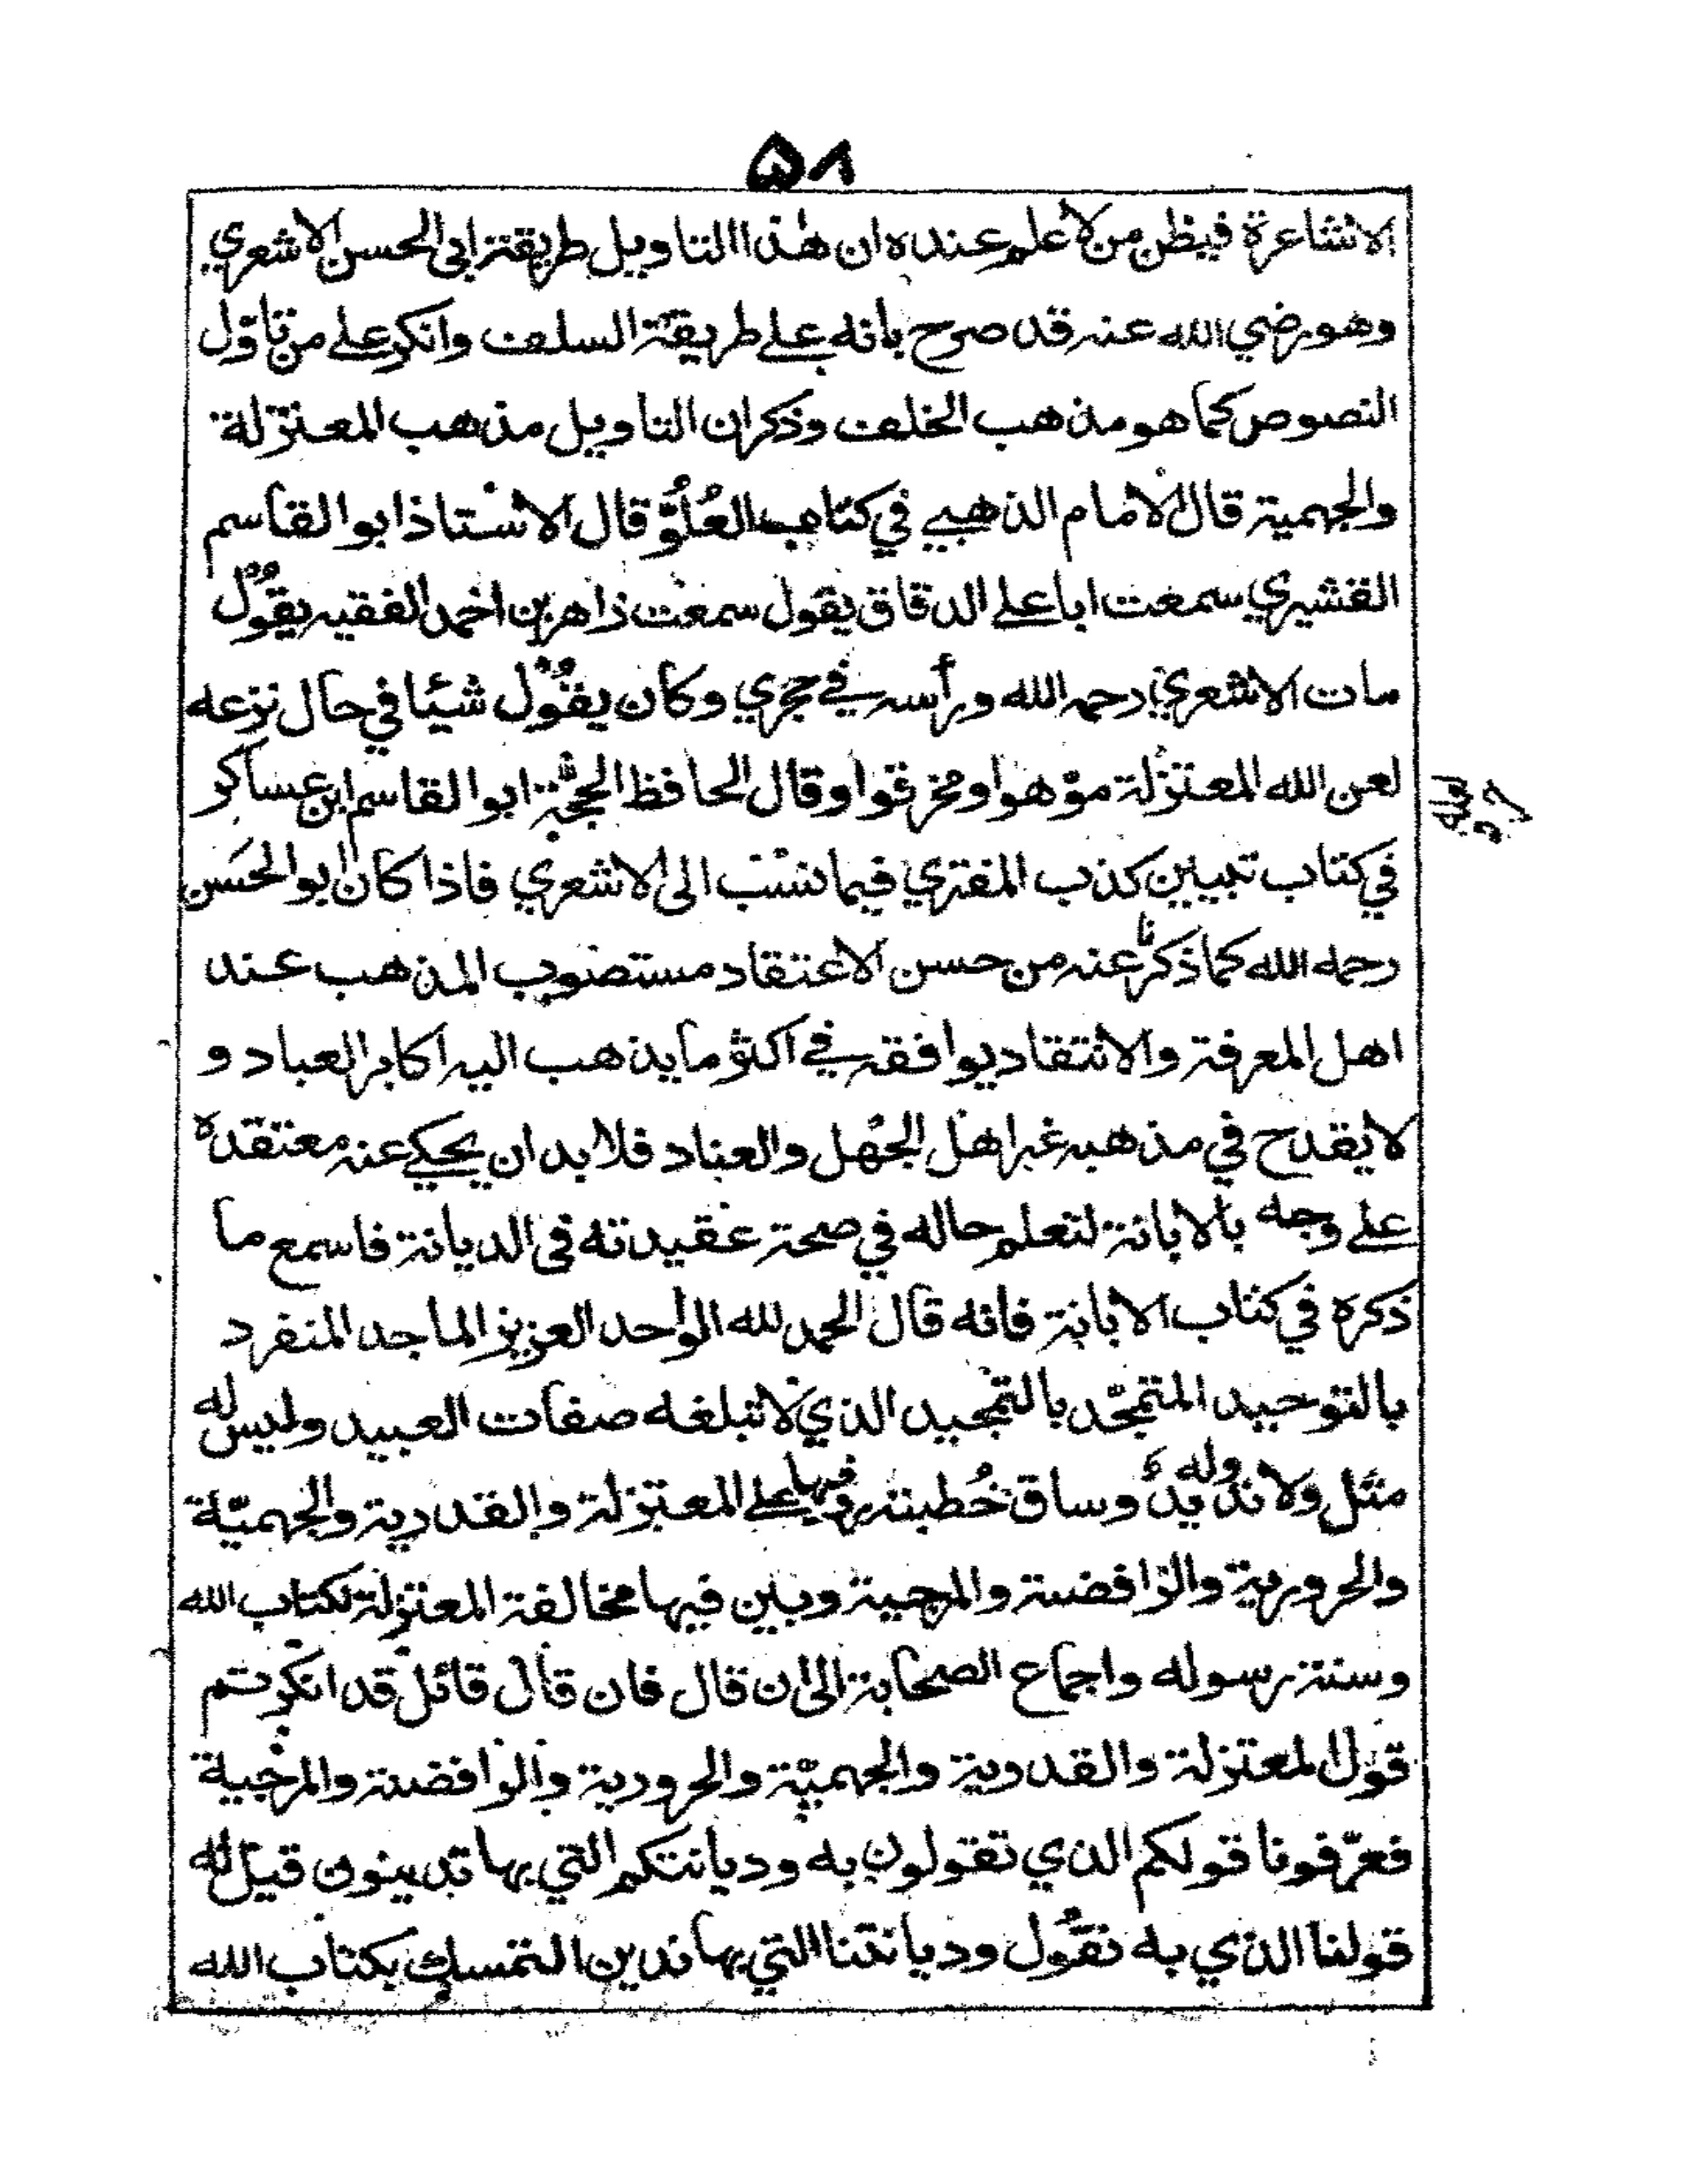 ۵۸
الاشاعرة فيظن من لا علم عنده ان هذا التاويل طريقة ابي الحسن الاشعري
وهو رضي الله عنه قد صرح بانه على طريقة السلف وانكر على من تاول
النصوص كما هو مذهب الخلف وذكر ان التاويل مذهب المعتزلة
والجهمية قال الامام الذهبي في كتاب العُلُوّ قال الاستاذ ابو القاسم
القشيري سمعت ابا على الدقاق يقول سمعت زاهر بن احمد الفقيه يقول
مات الاشعري رحمه الله ورأسه في حجري وكان يقول شيئا في حال نزعه
لعن الله المعتزلة موّهوا ومخرقوا وقال الحافظ الحجة ابو القاسم ابن عساكر
في كتاب تبيين كذب المفتري فيما نسب الى الاشعري فاذا كان ابو الحسن
رحمه الله كما ذكرنا عنه من حسن الاعتقاد مستصوب المذهب عند
اهل المعرفة والانتقاد يوافقه في اكثر ما يذهب اليه اكابر العباد و
لا يقدح في مذهبه غير اهل الجهل والعناد فلا بد ان يحكي عنه معتقده
على وجه بالابانة لتعلم حاله في صحة عقيدته في الديانة فاسمع ما
ذكره في كتاب الابانة فانه قال الحمد لله الواحد العزيز الماجد المنفرد
بالتوحيد المتمجّد بالتمجيد الذي لا تبلغه صفات العبيد وليس له
مثل ولا نديد وساق خُطبته فيها على المعتزلة والقدرية والجهميّة
والحرورية والرافضة والمرجية وبين فيها مخالفة المعتزلة لكتاب الله
وسنة رسوله واجماع الصحابة الى ان قال فان قال قائل قد انكرتم
قول المعتزلة والقدرية والجهميّة والحرورية والرافضة والمرجية
فعرّفونا قولكم الذي تقولون به وديانتكم التي بها تدينون قيل له
قولنا الذي به نقول وديانتنا التي بها ندين التمسك بكتاب الله